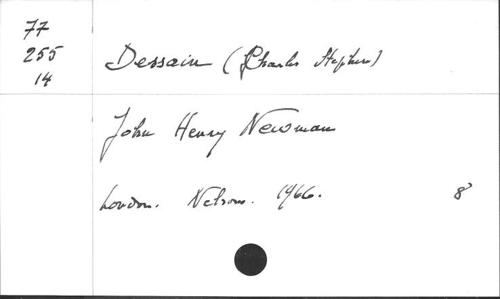 77
255
14
Dessain (Charles Stephen)
John Henry Newman
London. Nelson. 1966. 8°